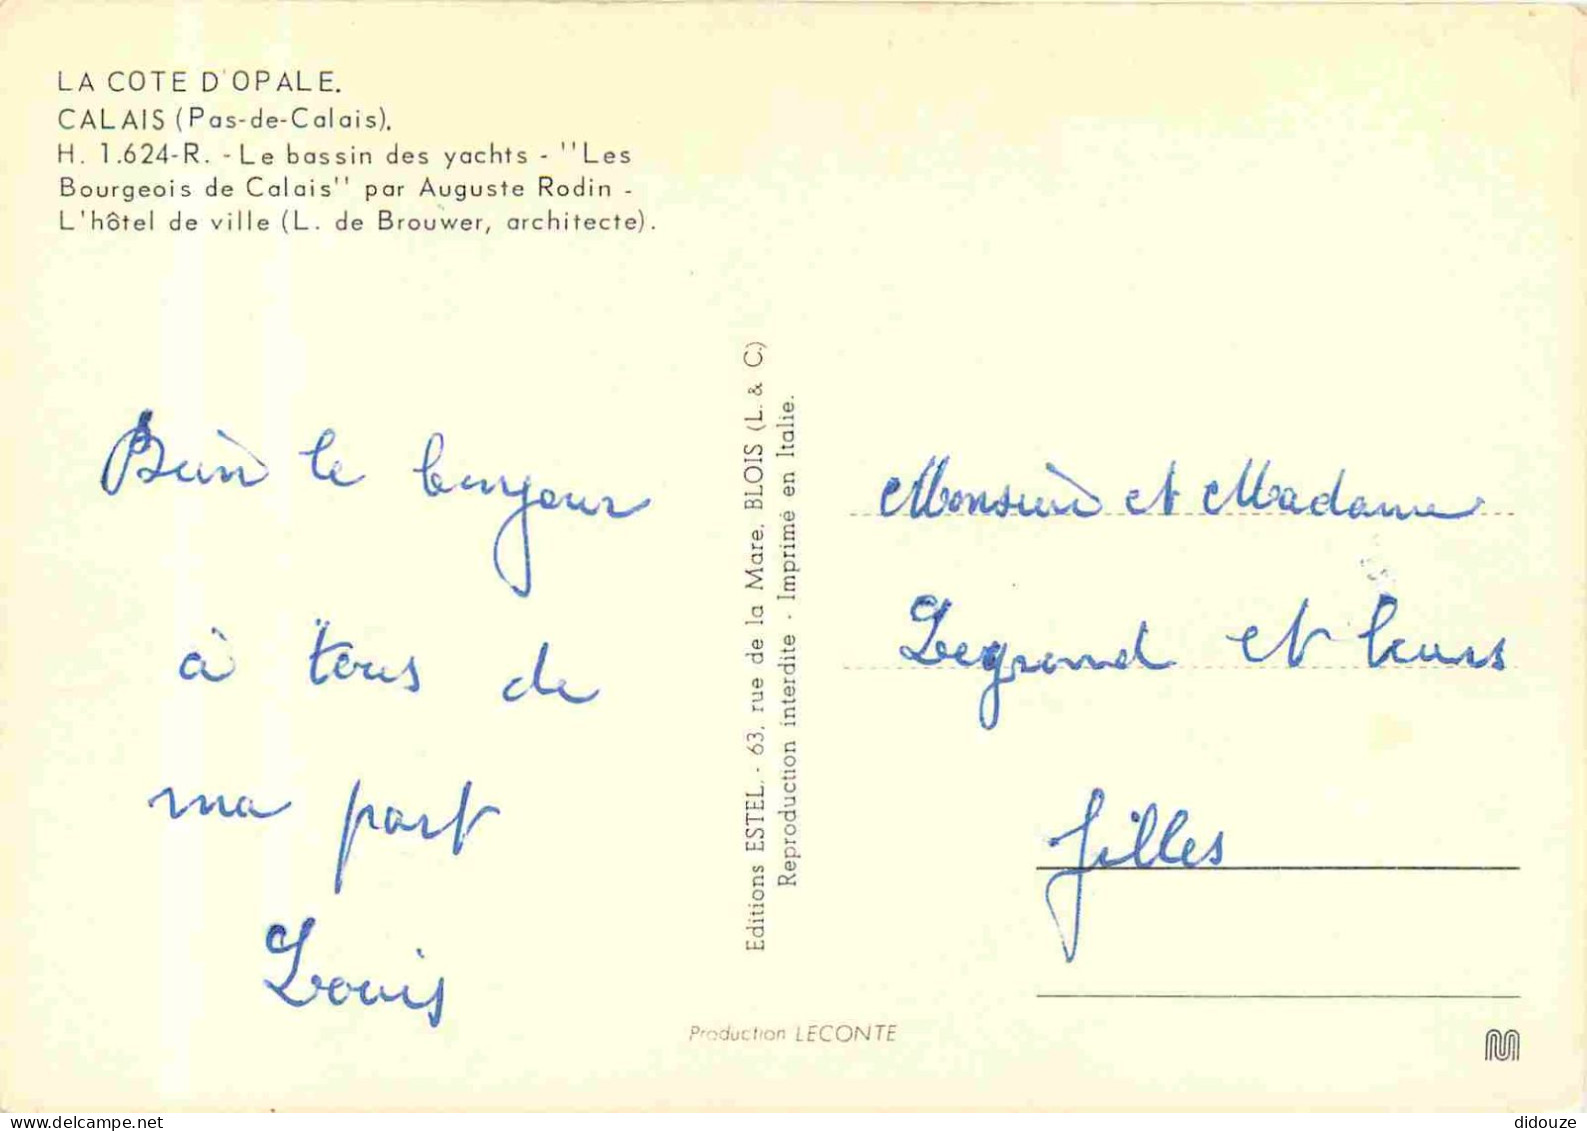 LA COTE D'OPALE.
CALAIS (Pas-de-Calais).
H. 1.624-R. - Le bassin des yachts - ''Les
Bourgeois de Calais'' par Auguste Rodin -
L'hôtel de ville (L. de Brouwer, architecte).
Bien le bonjour
à tous de
ma part
Louis
Editions ESTEL. - 63, rue de la Mare. BLOIS (L. & C.)
Reproduction interdite - Imprimé en Italie.
Monsieur et Madame
Legrand et leurs
filles
Production LECONTE
delcampe.net
didouze